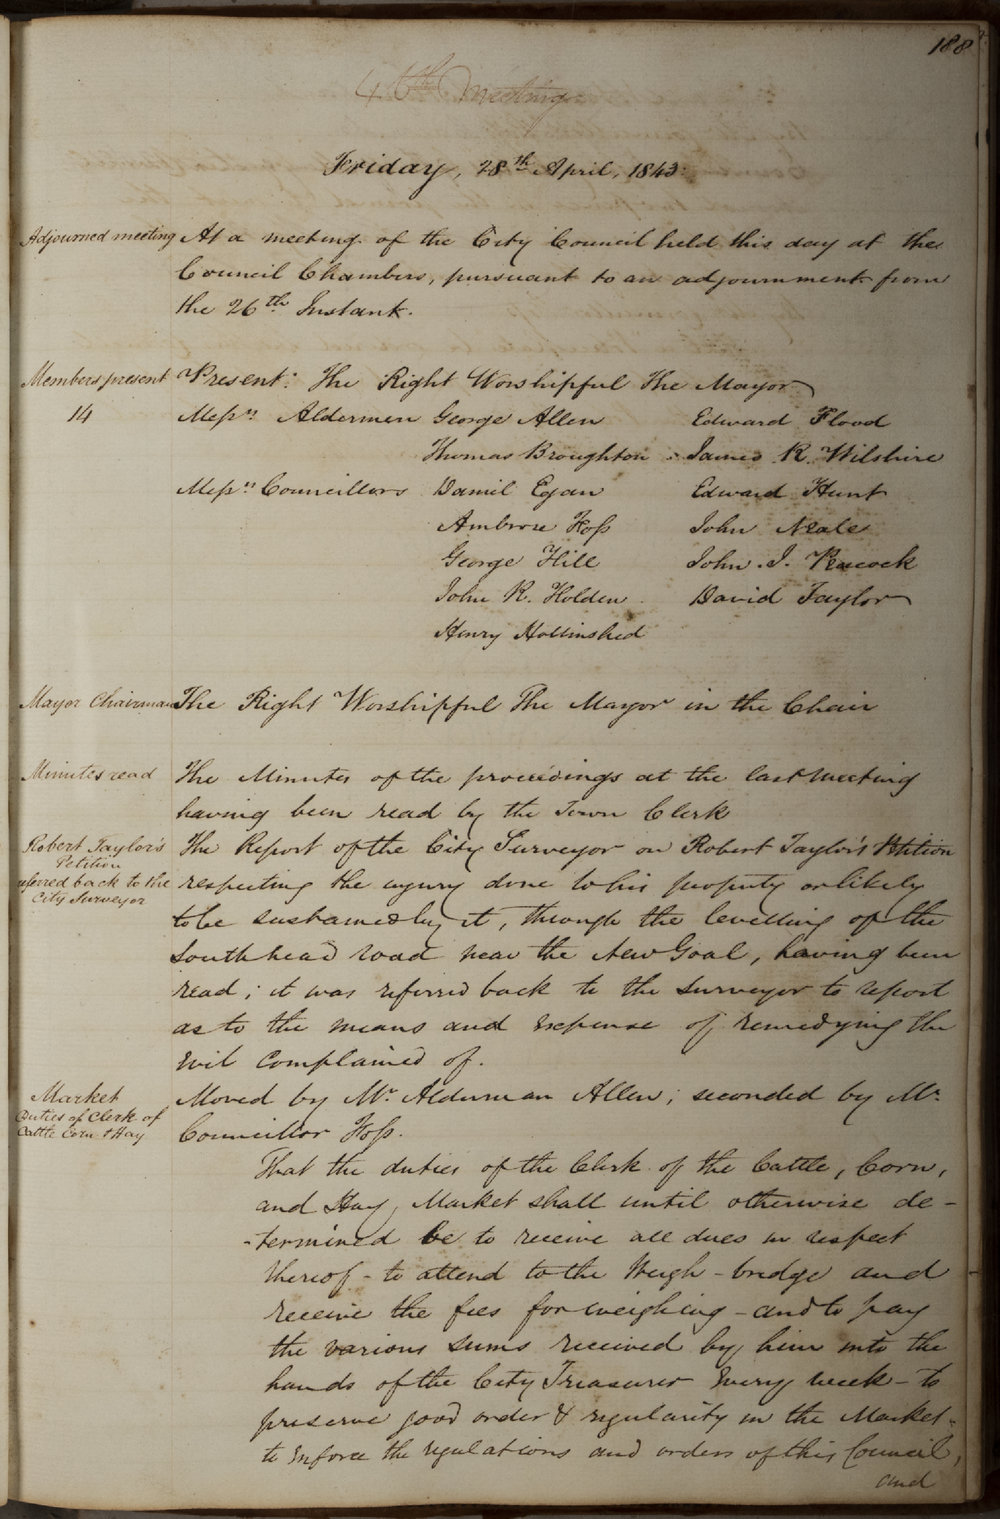 188
46th Meeting
Friday, 28th April, 1843.
Adjourned meeting
At a meeting of the City Council held this day at the
Council Chambers, pursuant to an adjournment from
the 26th Instant.
Members present
14
Present: The Right Worshipful The Mayor
Messrs Aldermen George Allen Edward Flood
Thomas Broughton James R. Wilshire
Messrs Councillors Daniel Egan Edward Hunt
Ambrose Foss John Neale
George Hill John J. Peacock
John R. Holden David Taylor
Henry Hollinshed
Mayor Chairman
The Right Worshipful The Mayor in the Chair
Minutes read
The Minutes of the proceedings at the last meeting
having been read by the Town Clerk
Robert Taylor's
Petition
referred back to the
City Surveyor
The Report of the City Surveyor on Robert Taylor's Petition
respecting the injury done to his property or likely
to be sustained by it, through the levelling of the
South head road near the New Goal, having been
read; it was referred back to the Surveyor to report
as to the means and expense of remedying the
evil complained of.
Market
Duties of Clerk of
Cattle Corn & Hay
Moved by Mr. Alderman Allen; seconded by Mr.
Councillor Foss.
That the duties of the Clerk of the Cattle, Corn,
and Hay, Market shall until otherwise de-
-termined be to receive all dues in respect
thereof - to attend to the Weigh-bridge and
receive the fees for weighing - and to pay
the various sums received by him into the
hands of the City Treasurer Every week - to
preserve good order & regularity in the Market -
to enforce the regulations and orders of this Council,
and